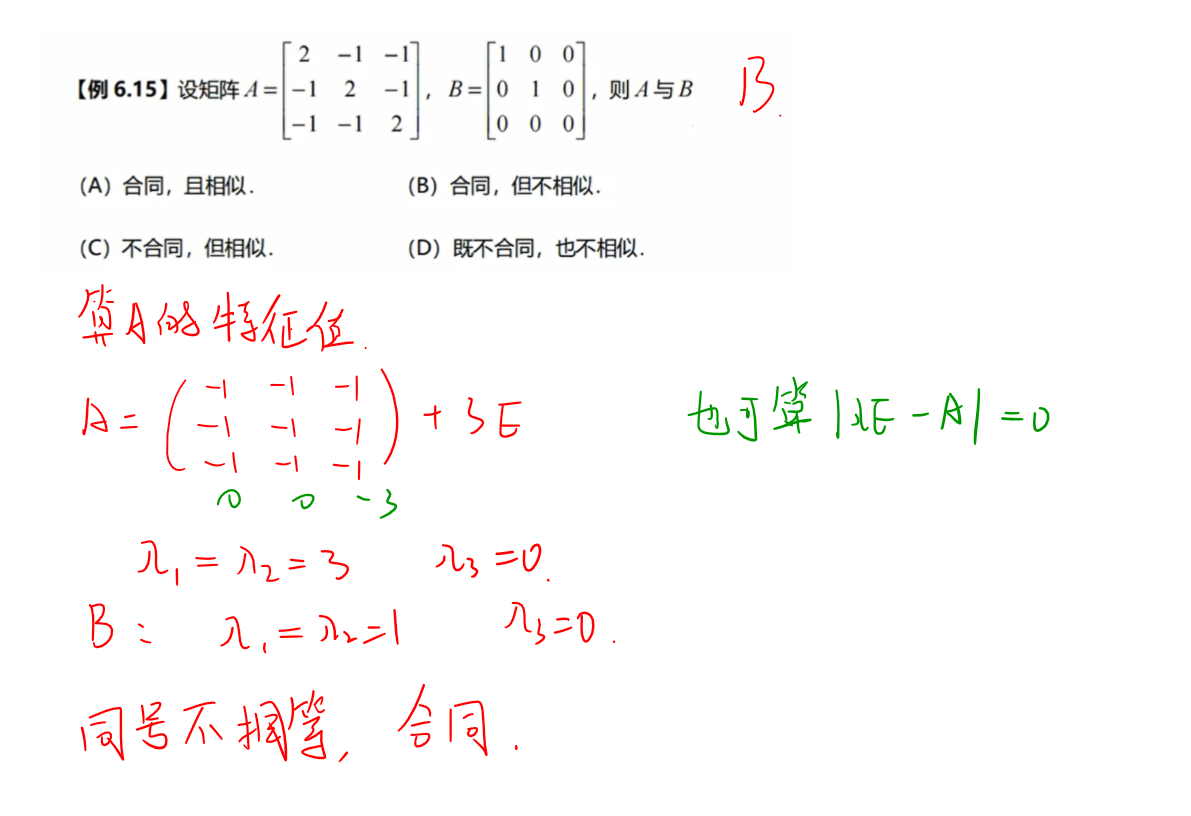 【例 6.15】设矩阵 A = [2 -1 -1; -1 2 -1; -1 -1 2], B = [1 0 0; 0 1 0; 0 0 0], 则 A 与 B B.
(A) 合同，且相似. (B) 合同，但不相似.
(C) 不合同，但相似. (D) 既不合同，也不相似.
算A的特征值.
A = (-1 -1 -1; -1 -1 -1; -1 -1 -1) + 3E 也可算 |λE - A| = 0
0 0 -3
λ₁ = λ₂ = 3 λ₃ = 0.
B: λ₁ = λ₂ = 1 λ₃ = 0.
同号不相等, 合同.